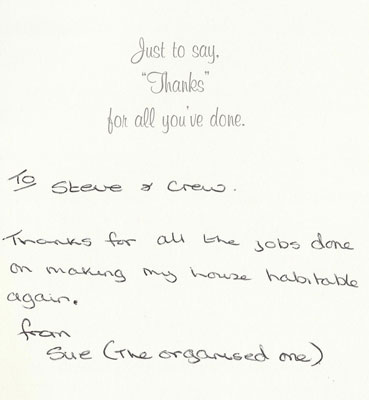 Just to say,
"Thanks"
for all you've done.
To Steve & Crew.
Thanks for all the jobs done
on making my house habitable
again.
from
Sue (The organised one)